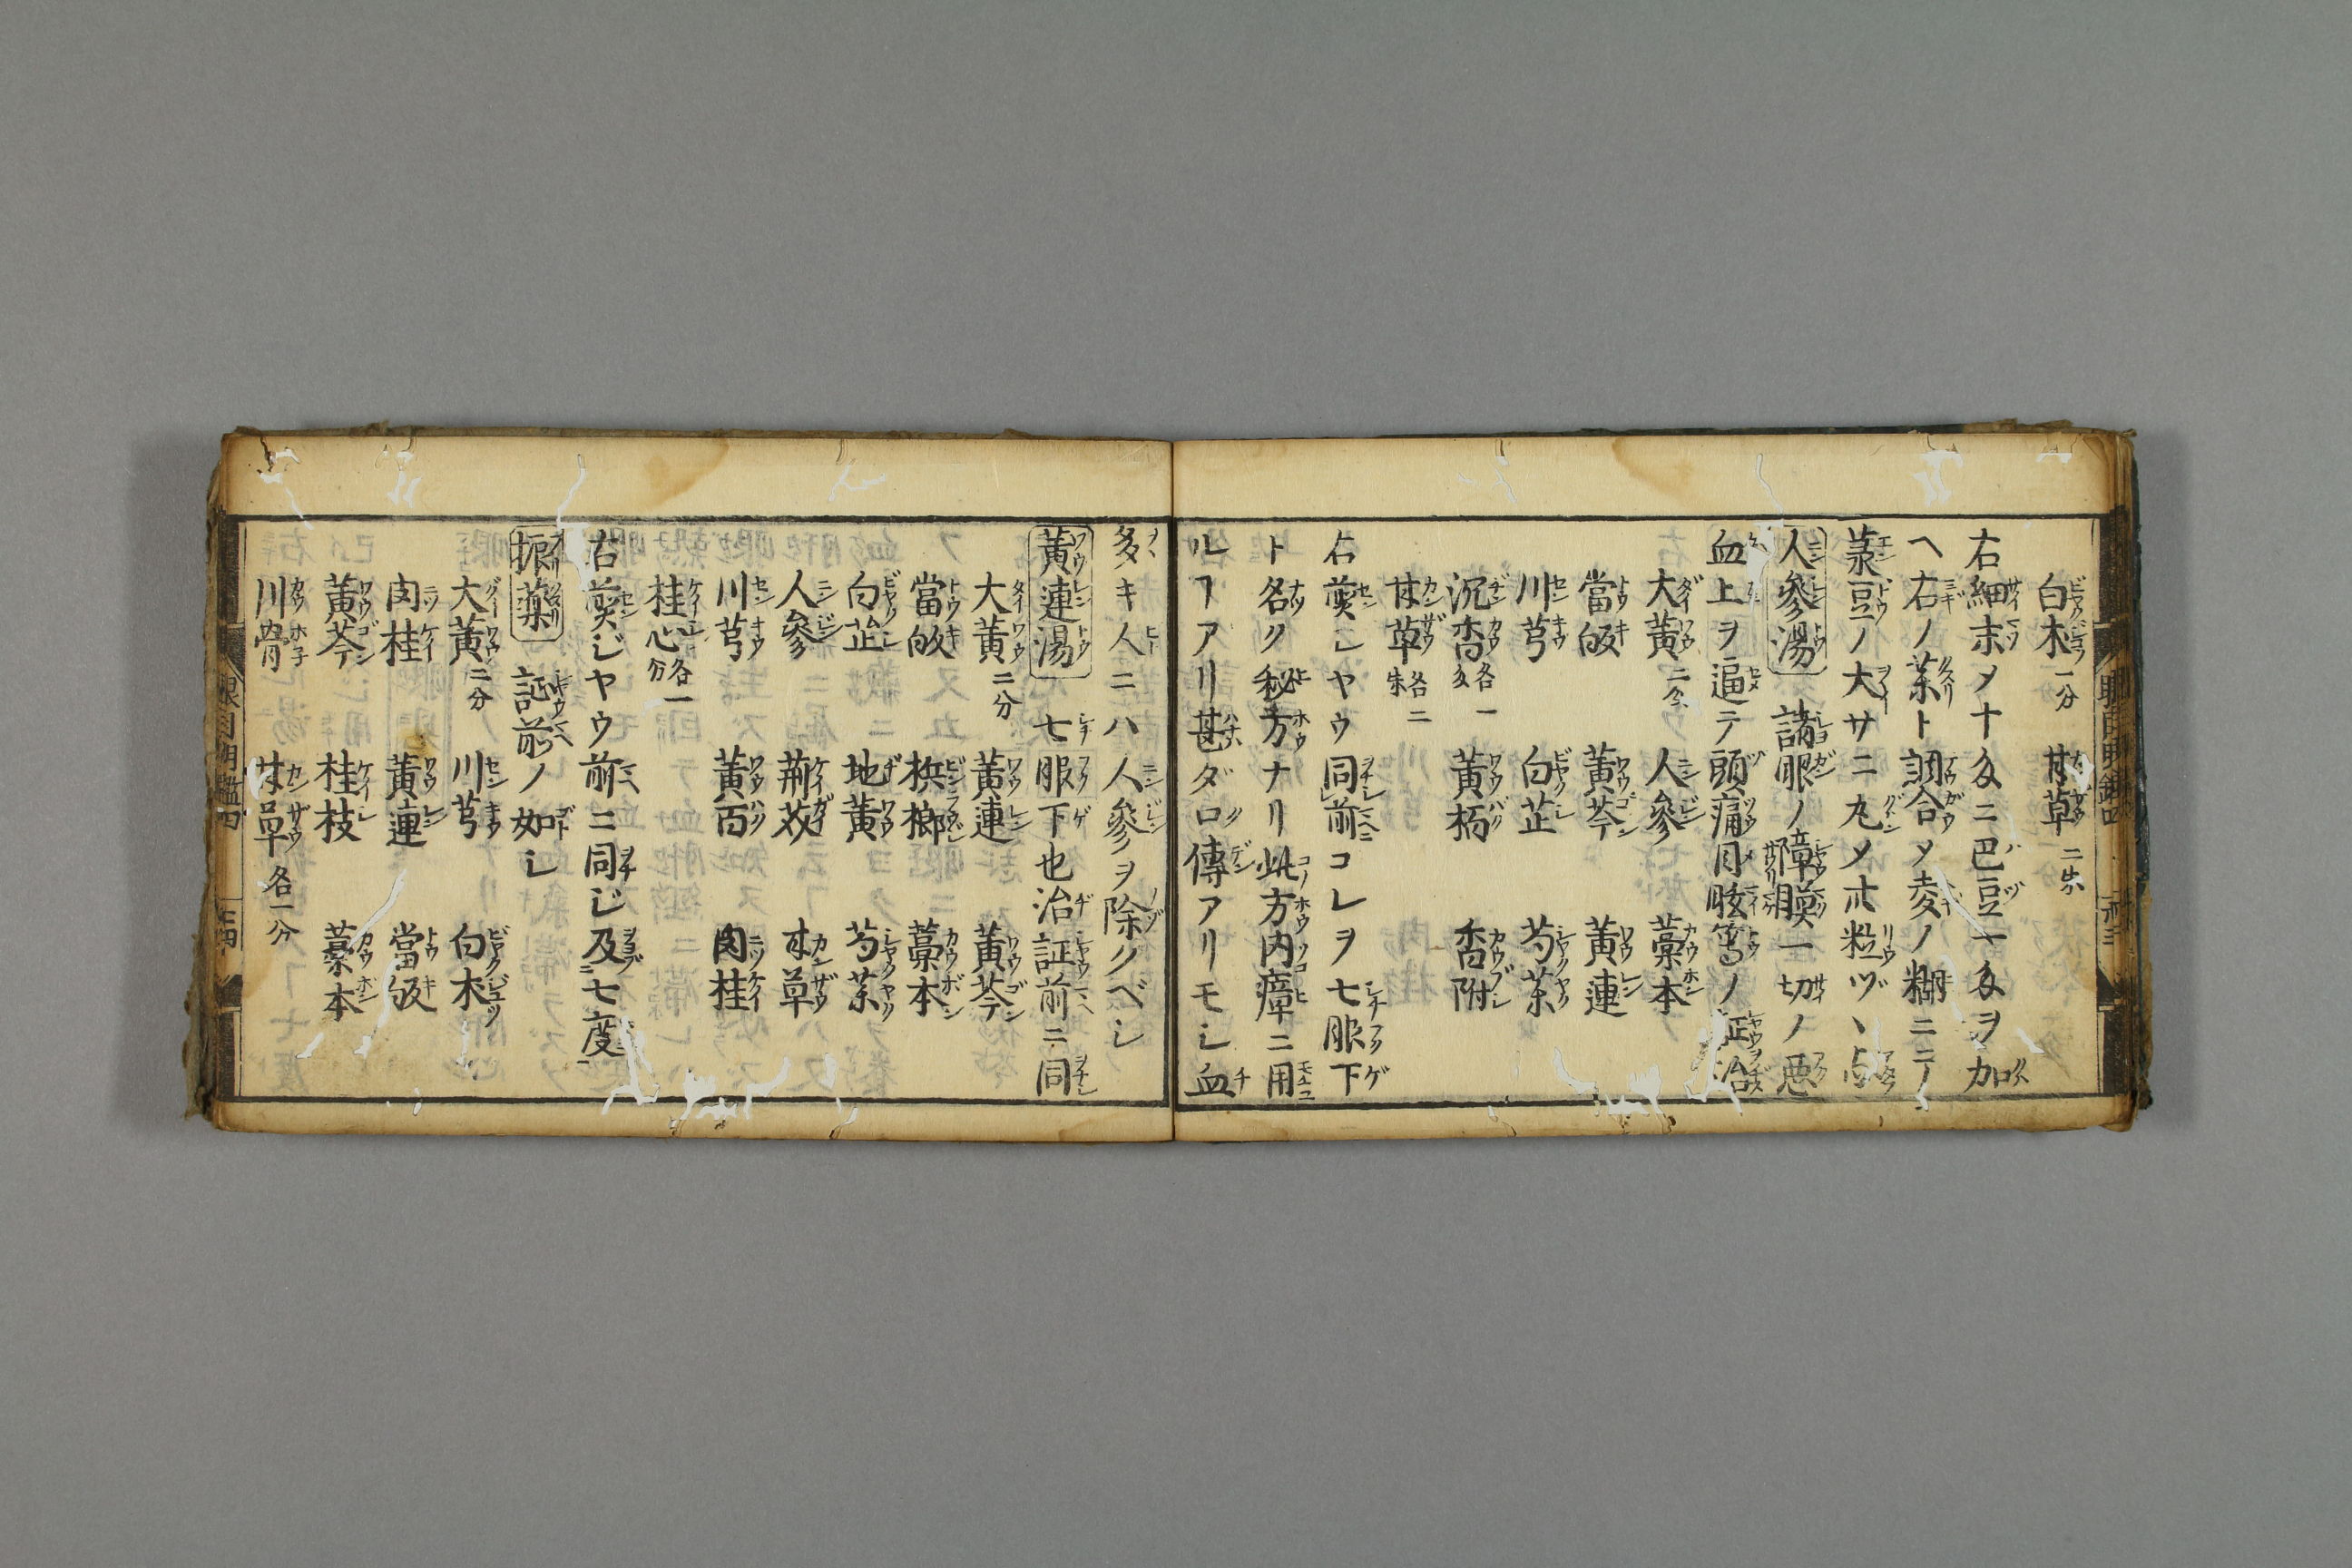 白朮一分 甘草二朱
右細末〆十匁ニ巴豆一匁ヲ加
ヘ右ノ薬ト調合〆麦ノ糊ニテ
菉豆ノ大サニ丸〆廿粒ヅヽ
人參湯 諸眼ノ障膜一切ノ悪
血上ヲ逼テ頭痛目眩等ノ証治
大黄二分 人參 藁本
當皈 黄芩 黄連
川芎 白芷 芍薬
沉香各一匁 黄栢 香附
甘草各二朱
右煎シヤウ同前コレヲ七服下
ト名ク秘方ナリ此方内瘴ニ用
ルヿアリ甚ダ口傳アリモシ血
多キ人ニハ人參ヲ除クベシ
黄連湯 七服下也治証前ニ同
大黄二分 黄連 黄芩
當皈 梹榔 藁本
白芷 地黄 芍薬
人參 荊芥 甘草
川芎 黄百 肉桂
桂心各一分
右煎ジヤウ前ニ同ジ及七度
振薬 証前ノ如シ
大黄二分 川芎 白朮
肉桂 黄連 當皈
黄芩 桂枝 藁本
川骨 甘草各一分
眼目明鑑四